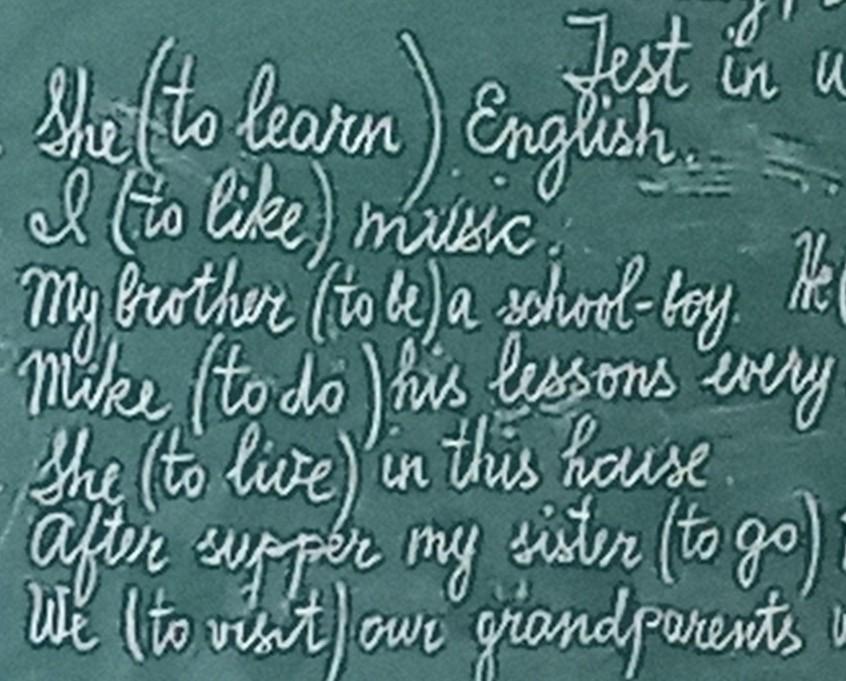 Test in
She (to learn) English.
I (to like) music.
My brother (to be) a school-boy. He (
Mike (to do) his lessons every
She (to live) in this house.
After supper my sister (to go)
We (to visit) our grandparents